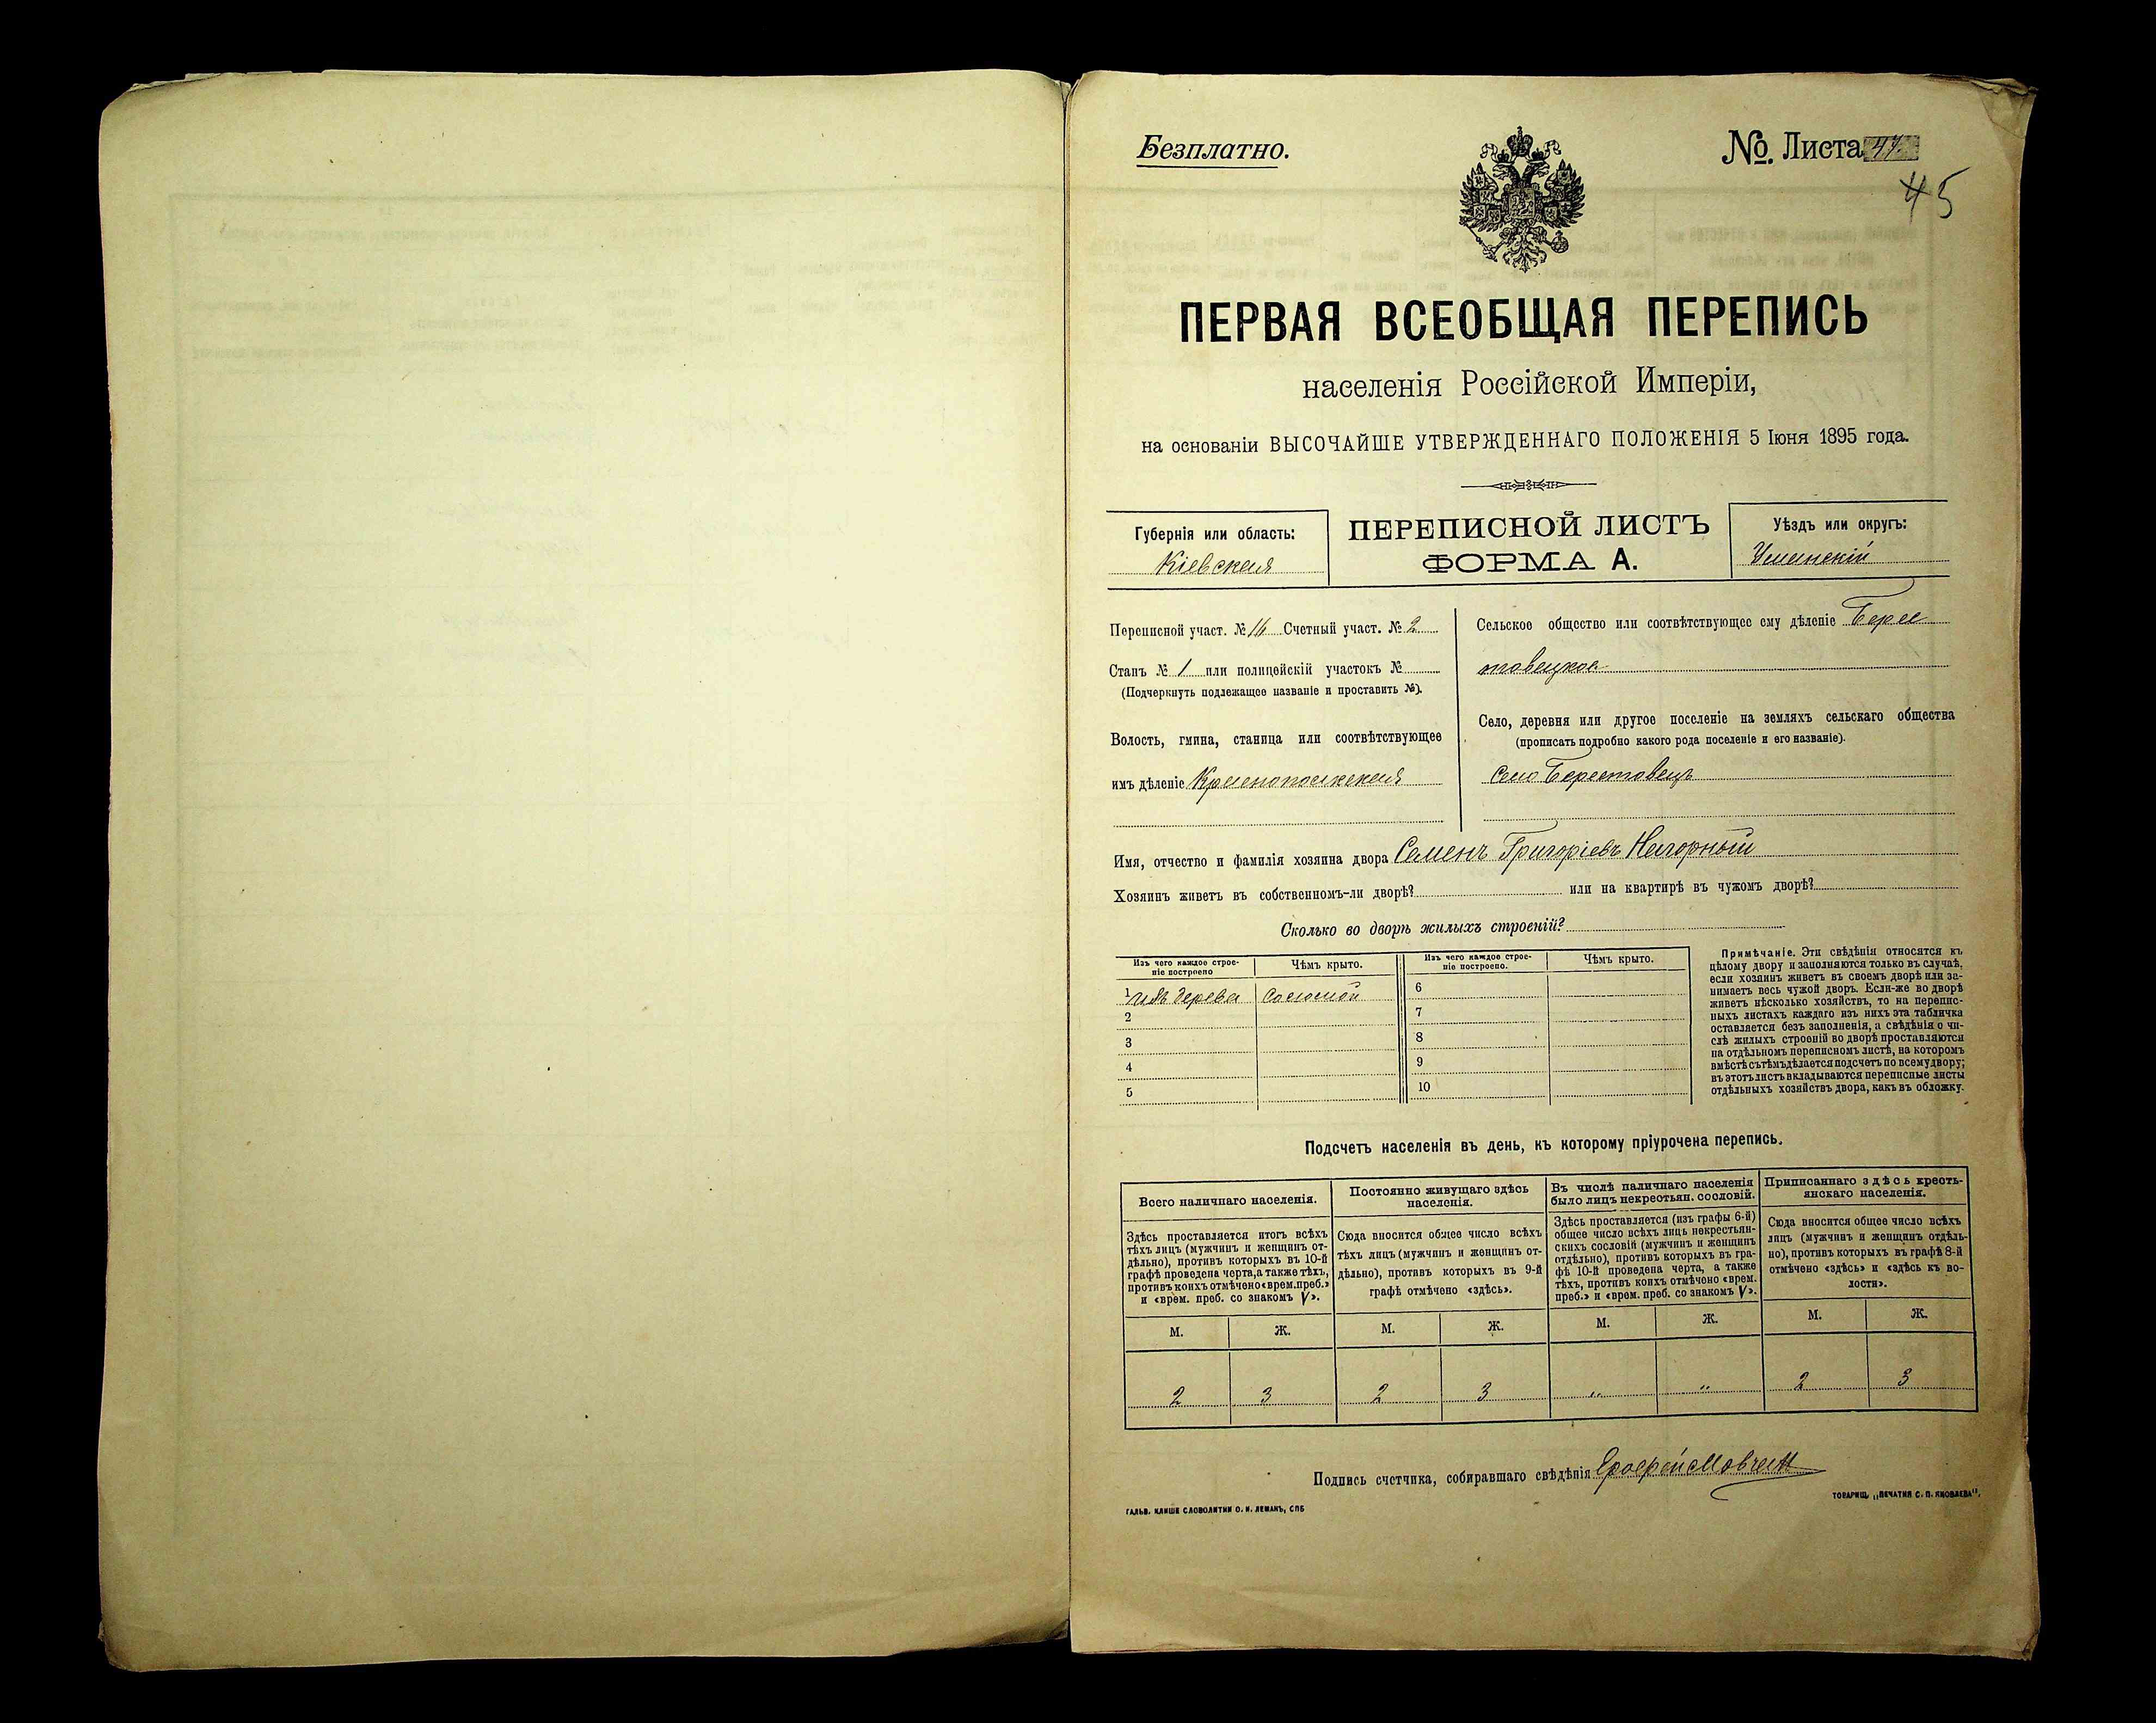 Безплатно.
№. Листа 47
45
ПЕРВАЯ ВСЕОБЩАЯ ПЕРЕПИСЬ
населенія Россійской Имперіи,
на основаніи ВЫСОЧАЙШЕ УТВЕРЖДЕННАГО ПОЛОЖЕНІЯ 5 Іюня 1895 года.
Губернія или область:
Кіевская
ПЕРЕПИСНОЙ ЛИСТЪ
ФОРМА А.
Уѣздъ или округъ:
Уманскій
Переписной участ. № 16 Счетный участ. № 2
Станъ № 1 или полицейскій участокъ №
(Подчеркнуть подлежащее названіе и проставить №).
Волость, гмина, станица или соотвѣтствующее
имъ дѣленіе Краснопольская
Сельское общество или соотвѣтствующее ему дѣленіе Берес
товецкое
Село, деревня или другое поселеніе на земляхъ сельскаго общества
(прописать подробно какого рода поселеніе и его названіе).
Село Берестовецъ
Имя, отчество и фамилія хозяина двора Семенъ Григоріевъ Нагорный
Хозяинъ живетъ въ собственномъ-ли дворѣ? или на квартирѣ въ чужомъ дворѣ?
Сколько во дворѣ жилыхъ строеній?
Изъ чего каждое строе-
ніе построено
Чѣмъ крыто.
Изъ чего каждое строе-
ніе построено.
Чѣмъ крыто.
1 изъ дерева соломой
2
3
4
5
6
7
8
9
10
Примѣчаніе. Эти свѣдѣнія относятся къ
цѣлому двору и заполняются только въ случаѣ,
если хозяинъ живетъ въ своемъ дворѣ или за-
нимаетъ весь чужой дворъ. Если-же во дворѣ
живетъ нѣсколько хозяйствъ, то на перепис-
ныхъ листахъ каждаго изъ нихъ эта табличка
оставляется безъ заполненія, а свѣдѣнія о чи-
слѣ жилыхъ строеній во дворѣ проставляются
на отдѣльномъ переписномъ листѣ, на которомъ
вмѣстѣ съ тѣмъ дѣлается подсчетъ по всему двору;
въ этотъ листъ вкладываются переписные листы
отдѣльныхъ хозяйствъ двора, какъ въ обложку.
Подсчетъ населенія въ день, къ которому пріурочена перепись.
Всего наличнаго населенія.
Здѣсь проставляется итогъ всѣхъ
тѣхъ лицъ (мужчинъ и женщинъ от-
дѣльно), противъ которыхъ въ 10-й
графѣ проведена черта, а также тѣхъ,
противъ коихъ отмѣчено «врем. преб.»
и «врем. преб. со знакомъ V».
Постоянно живущаго здѣсь
населенія.
Сюда вносится общее число всѣхъ
тѣхъ лицъ (мужчинъ и женщинъ от-
дѣльно), противъ которыхъ въ 9-й
графѣ отмѣчено «здѣсь».
Въ числѣ наличнаго населенія
было лицъ некрестьян. сословій.
Здѣсь проставляется (изъ графы 6-й)
общее число всѣхъ лицъ некрестьян-
скихъ сословій (мужчинъ и женщинъ
отдѣльно), противъ которыхъ въ гра-
фѣ 10-й проведена черта, а также
тѣхъ, противъ коихъ отмѣчено «врем.
преб.» и «врем. преб. со знакомъ V».
Приписаннаго здѣсь кресть-
янскаго населенія.
Сюда вносится общее число всѣхъ
лицъ (мужчинъ и женщинъ отдѣль-
но), противъ которыхъ въ графѣ 8-й
отмѣчено «здѣсь» и «здѣсь къ во-
лости».
М. Ж. М. Ж. М. Ж. М. Ж.
2 3 2 3 „ „ 2 3
Подпись счетчика, собиравшаго свѣдѣнія Ерофей Мовчан
ГАЛЬВ. КЛИШЕ СЛОВОЛИТНИ О. И. ЛЕМАНЪ, СПБ
ТОВАРИЩ. „ПЕЧАТНЯ С. П. ЯКОВЛЕВА".